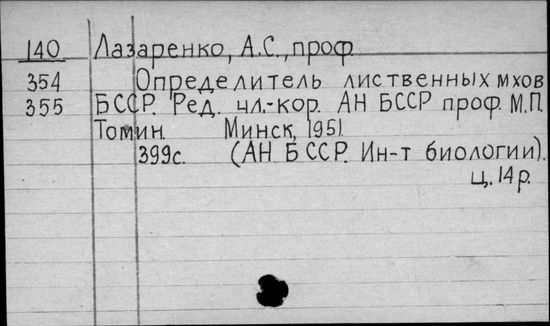 140 Лазаренко, А.С., проф.
354 Определитель лиственных мхов
355 БССР. Ред. чл.-кор. АН БССР проф. М.П.
Томин. Минск, 1951
399с. (АН БССР. Ин-т биологии).
ц. 14 р.